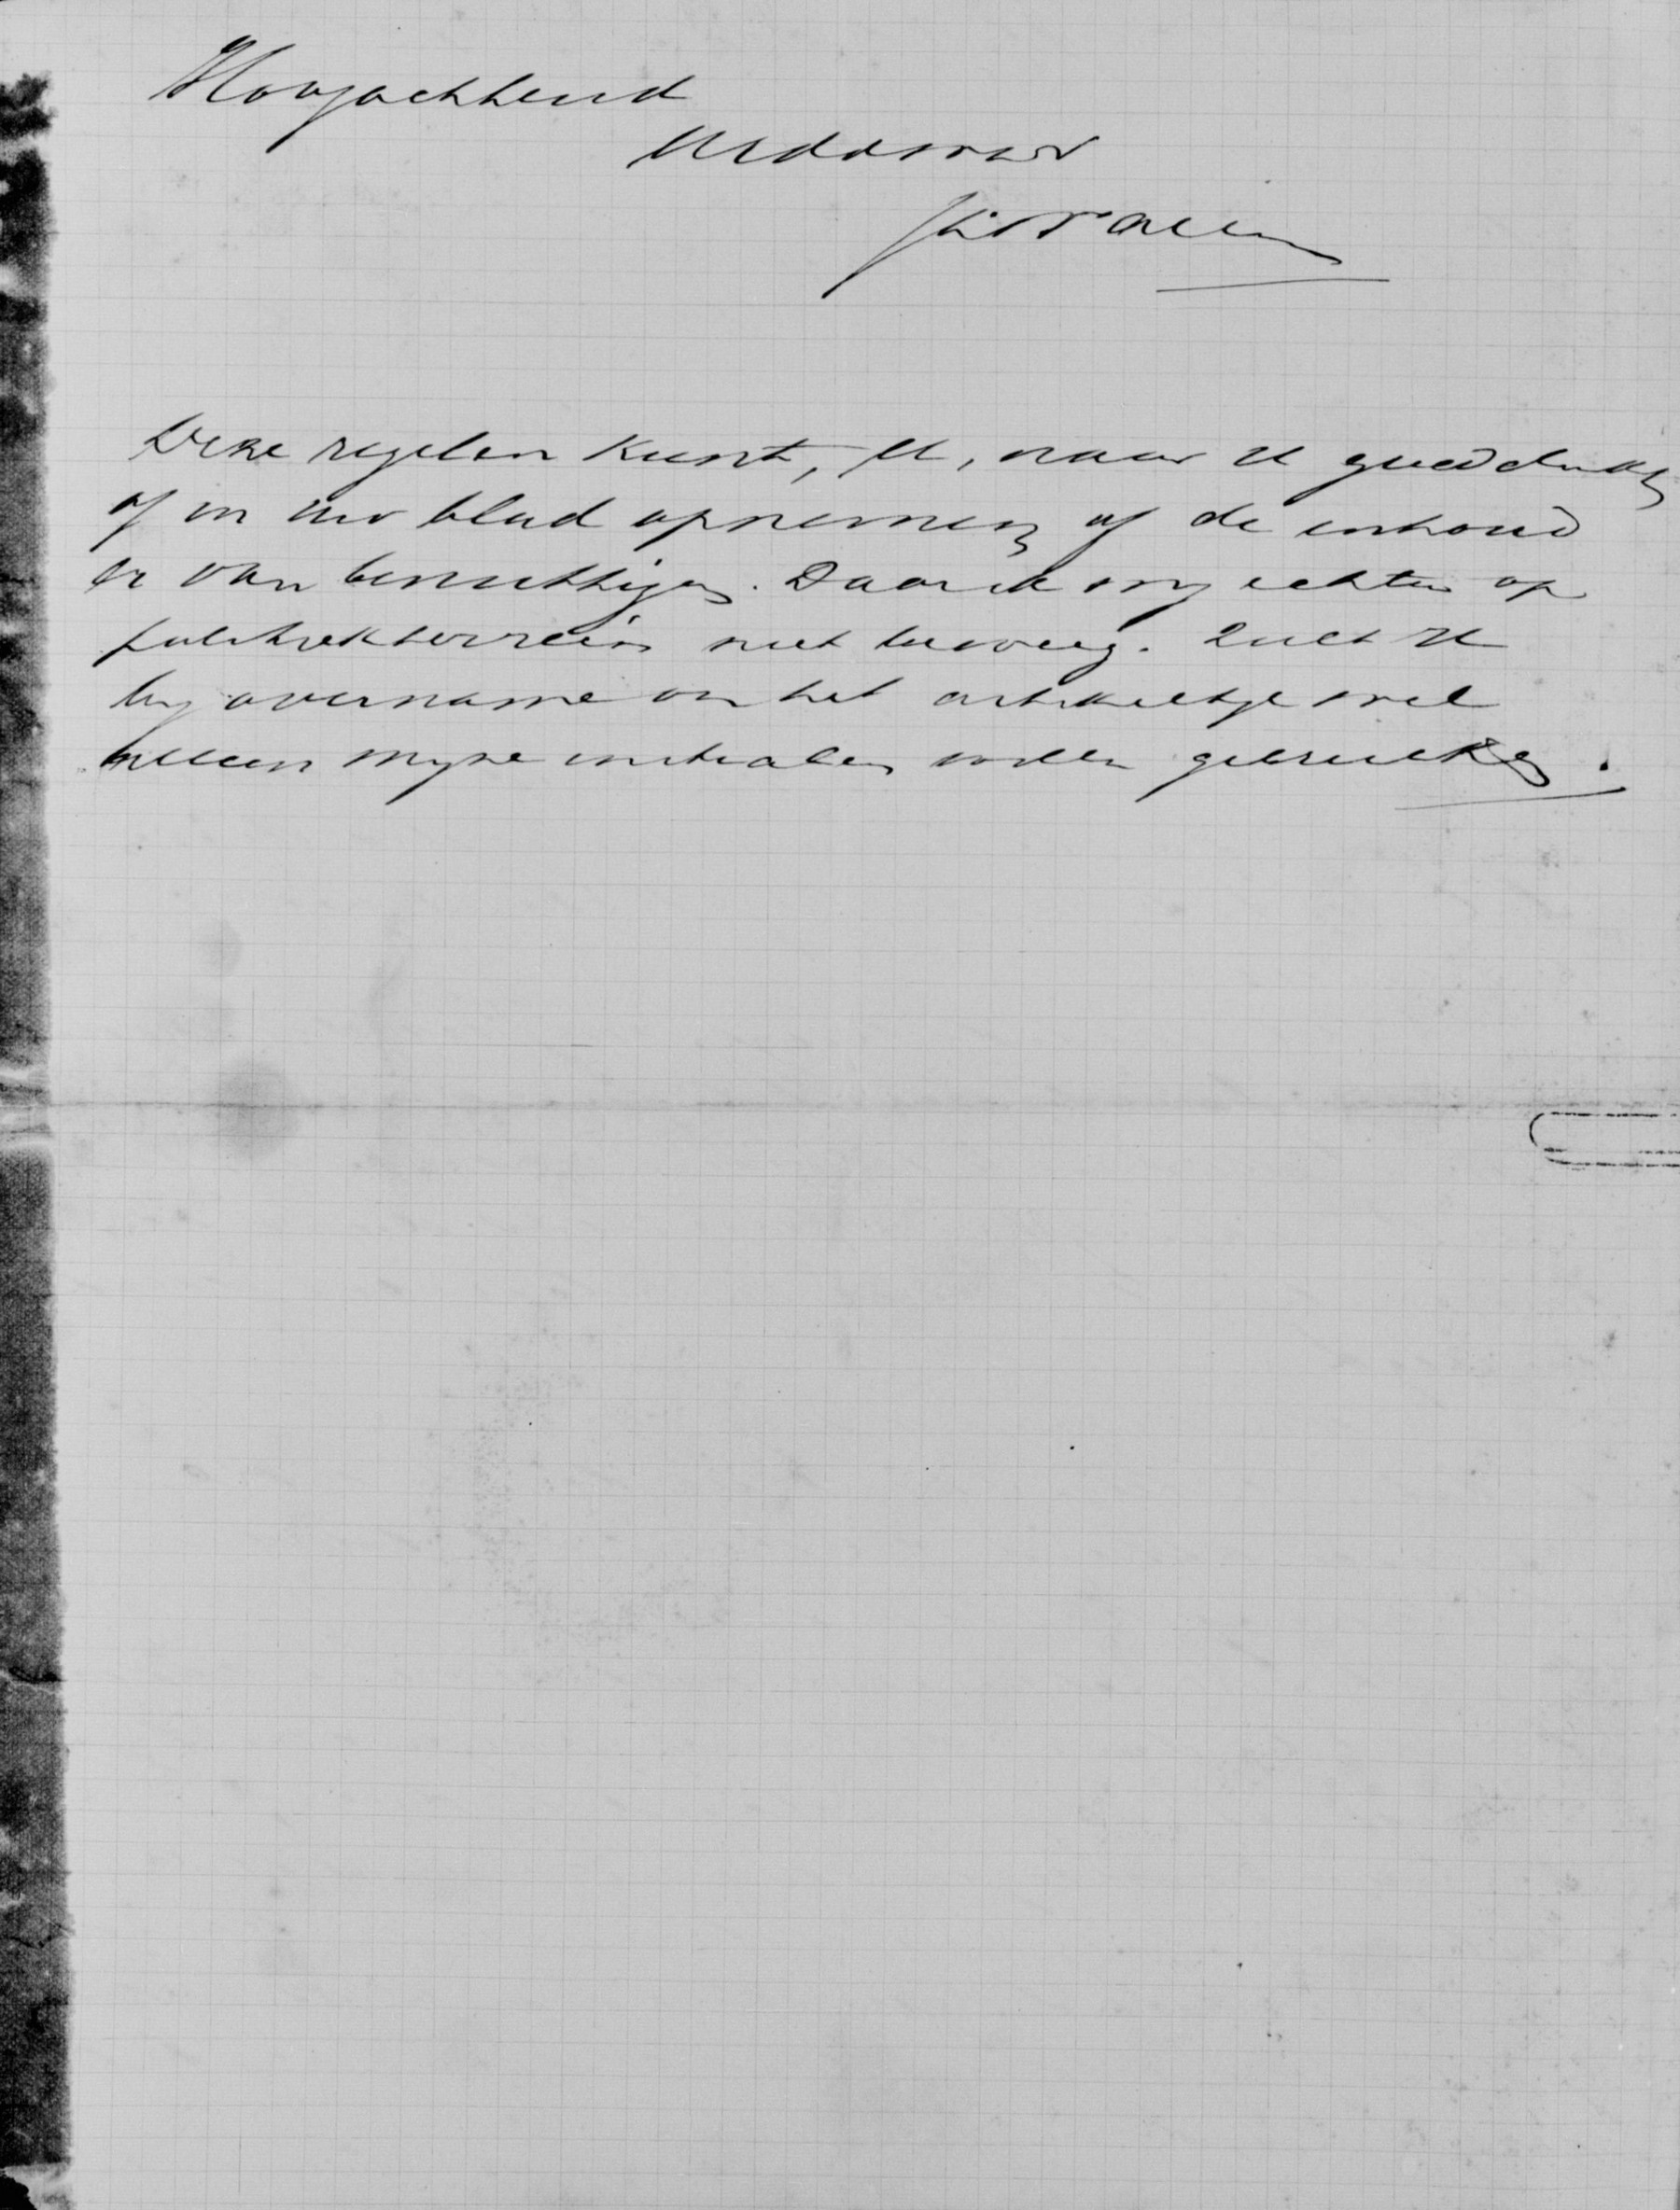 Hoogachtend
Uw dw
Deze regelen kunt, U, naar U goeddunkt
of in uw blad opnemen of de inhoud
er van benuttigen. Daar ik my echter op
publiek terrein niet beweeg. Zult U
by overname van het artikeltje wel
alleen myne initialen willen gebruiken.